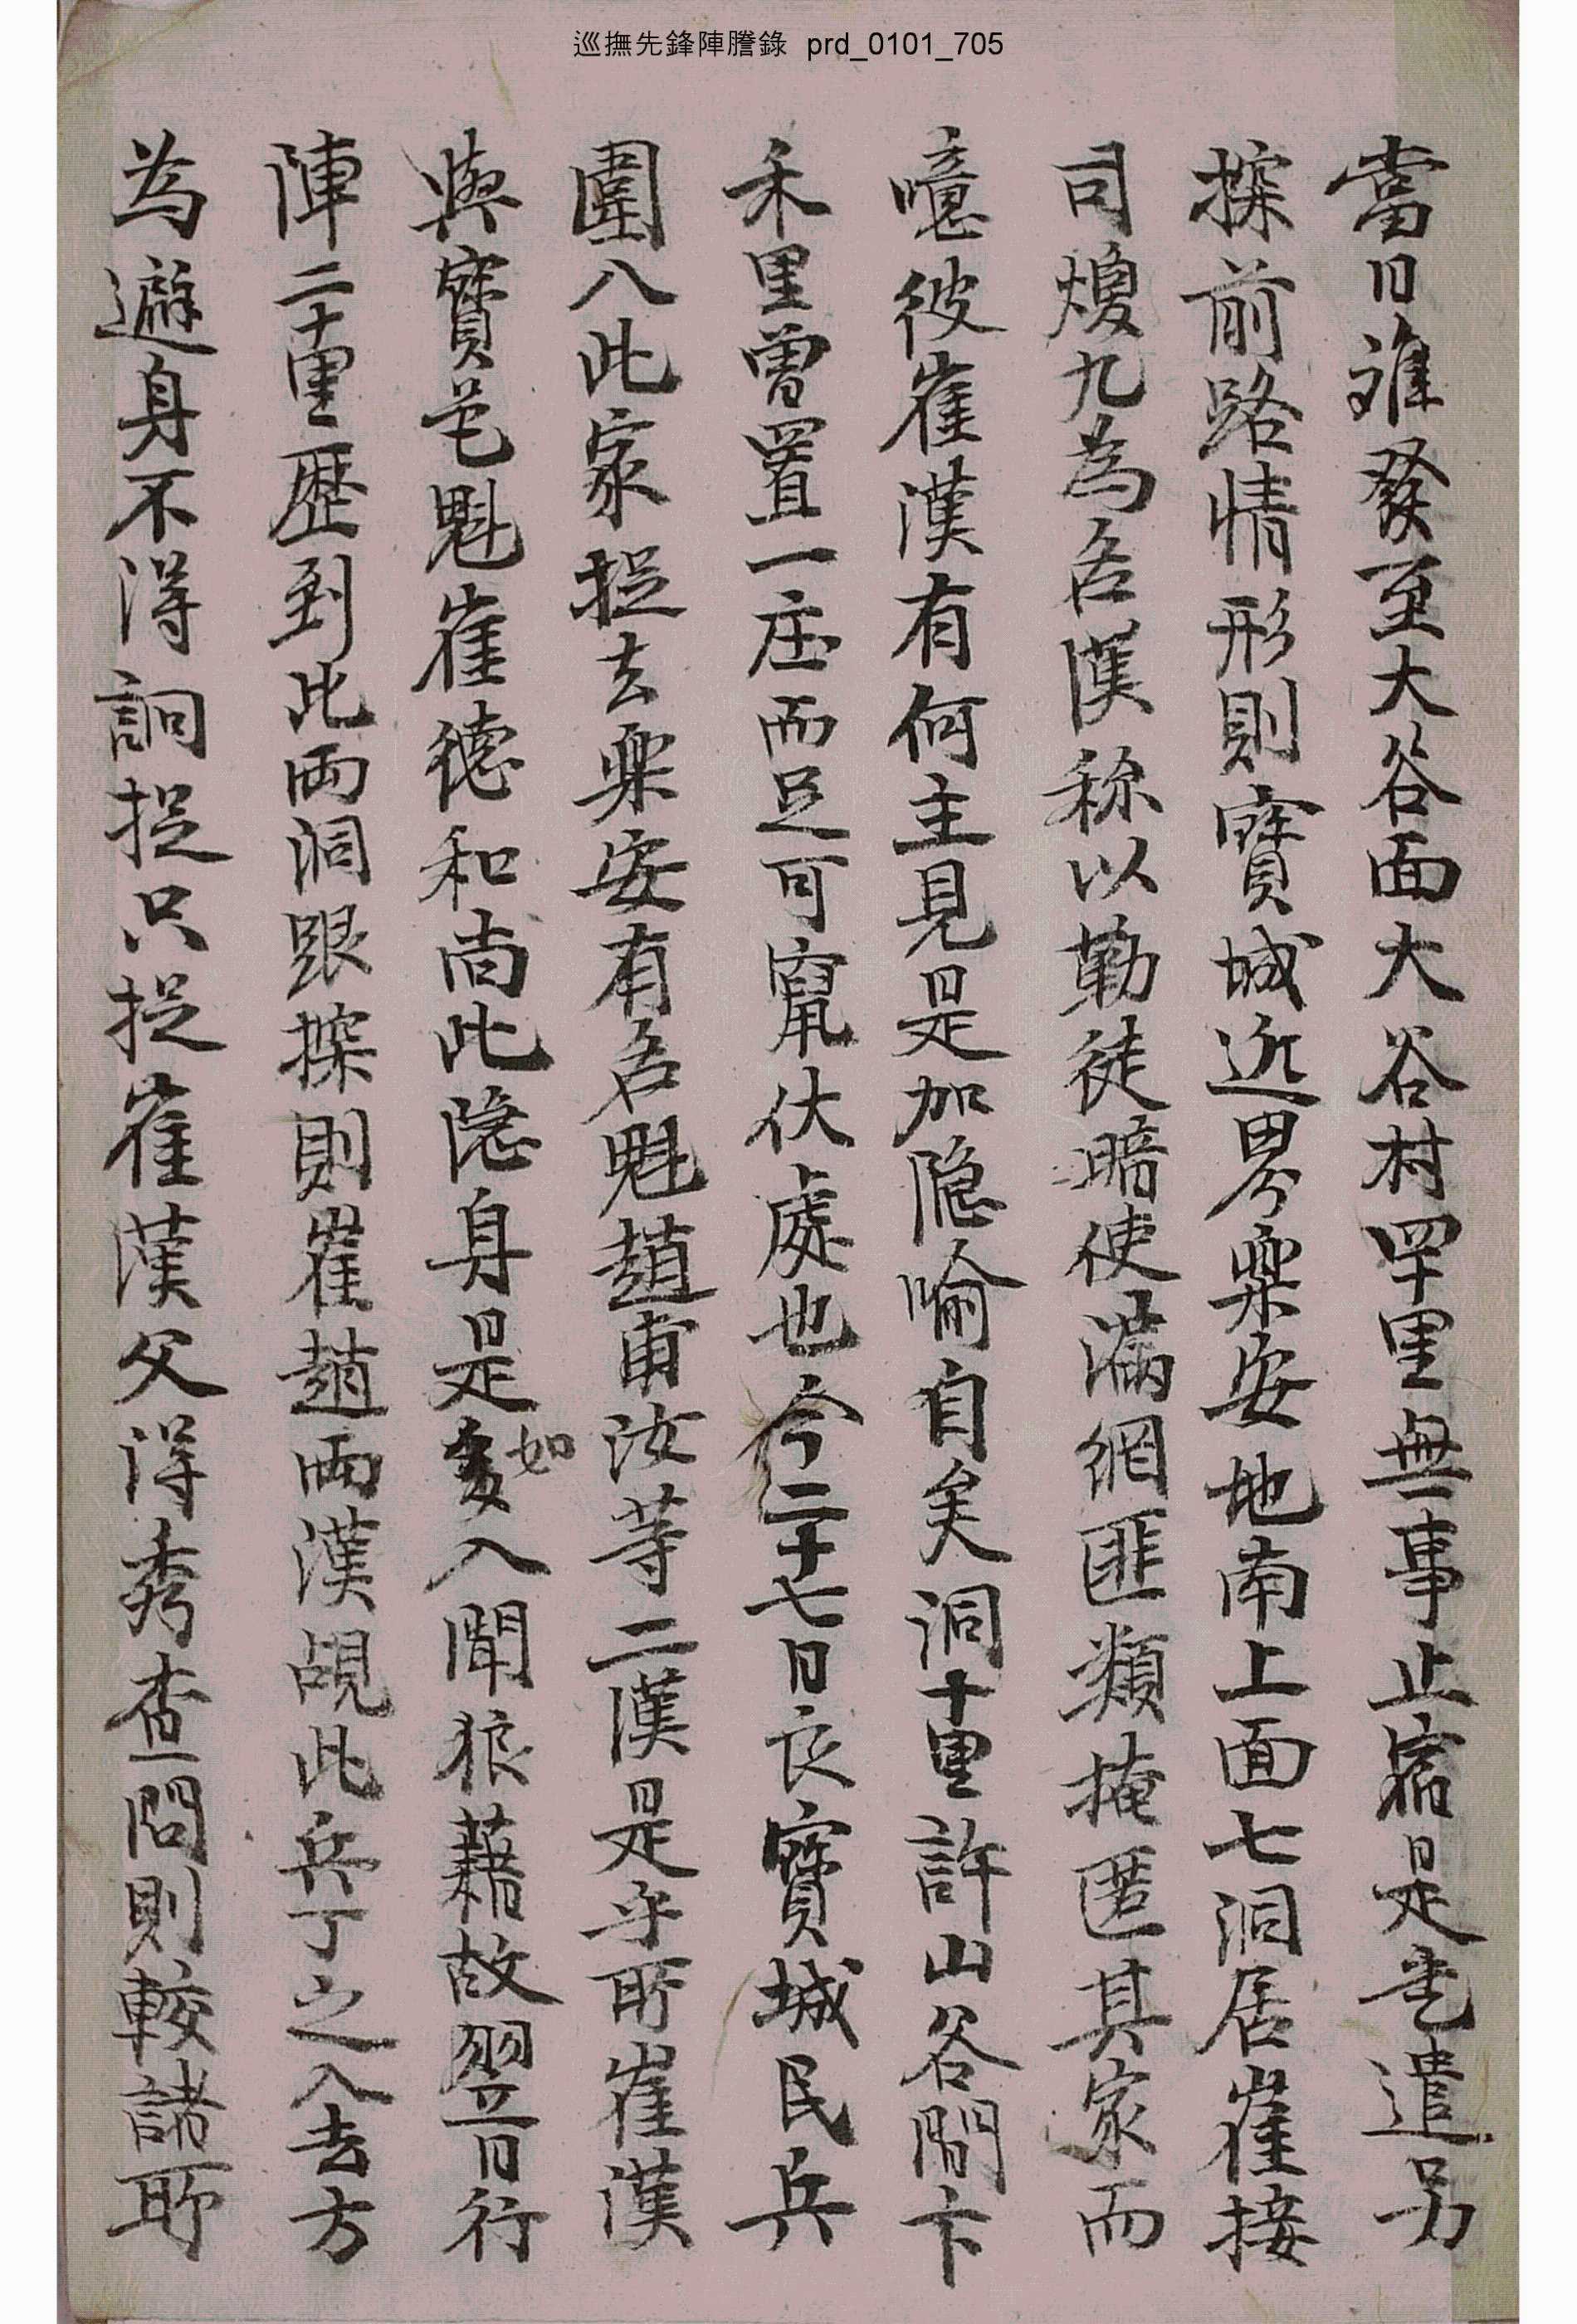 巡撫先鋒陣謄錄 prd_0101_705
當日離發至大谷面大谷村四十里無事止宿是遣遣另
探前路情形則寶城近界樂安地南上面七洞居崔接
司煥九為名漢称以勤徒暗使滿網匪類掩匿其家而
噫彼崔漢有何主見是加隐喻自矣洞十里許山谷間卞
禾里曾置一庄而足可竄伏處也今二十七日良寶城民兵
圍八此家捉去樂安有名魁趙甫汝等二漢是乎所崔漢
與寶邑魁崔德和尚此隐身是如入聞狼藉故翌日行
陣二十里歷到此兩洞跟探則崔趙兩漢覘此兵丁之入去方
為避身不得詗捉只捉崔漢父得秀查問則較諸所